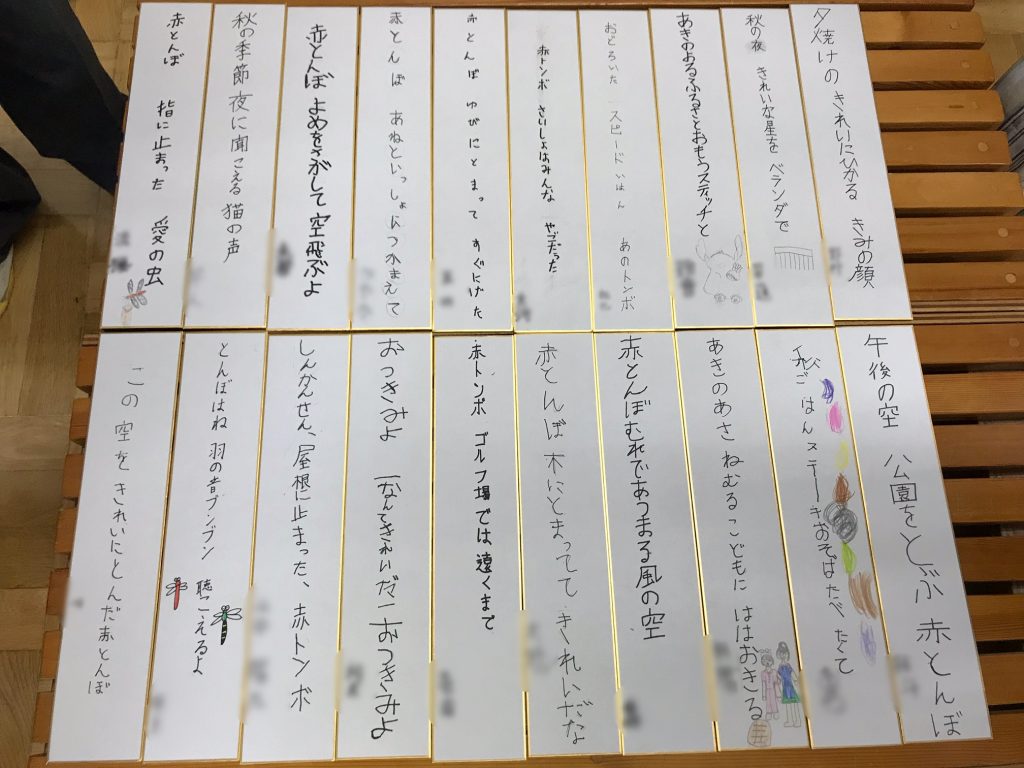 夕焼けの きれいにひかる きみの顔
秋の夜 きれいな星を ベランダで
あきのよるふるさとおもうスティッチと
おどろいた スピードいはん あのトンボ
赤トンボ さいしょはみんな ヤゴだった
赤とんぼ ゆびにとまって すぐにげた
赤とんぼ あねといっしょに つかまえて
赤とんぼ よめをさがして 空飛ぶよ
秋の季節 夜に聞こえる 猫の声
赤とんぼ 指に止まった 愛の虫
午後の空 公園をとぶ 赤とんぼ
秋ごはんステーキおそばたべたて
あきのあさ ねむるこどもに ははおきる
赤とんぼむれであつまる風の空
赤とんぼ 木にとまってて きれいだな
赤トンボ ゴルフ場では 遠くまで
おつきみよ なんてきれいだ おつきみよ
しんかんせん、屋根に止まった、赤トンボ
とんぼはね 羽の音ブンブン 聴こえるよ
この空を きれいにとんだ 赤とんぼ